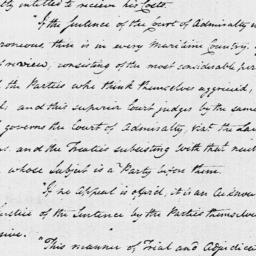 ly entitled to receive his Costs.
"If the Sentence of the Court of Admiralty
roneous there is in every Maritime Country
review, consisting of the most considerable per
the Parties who think themselves aggrieved,
and this superior Court judges by the same
governs the Court of Admiralty, viz. the Law
and the Treaties subsisting with that neut
whose Subject is a Party before them.
"If no Appeal is offered, it is an
ustice of the Sentence by the Parties themselves
sive.
"This manner of Trial and Adjudica